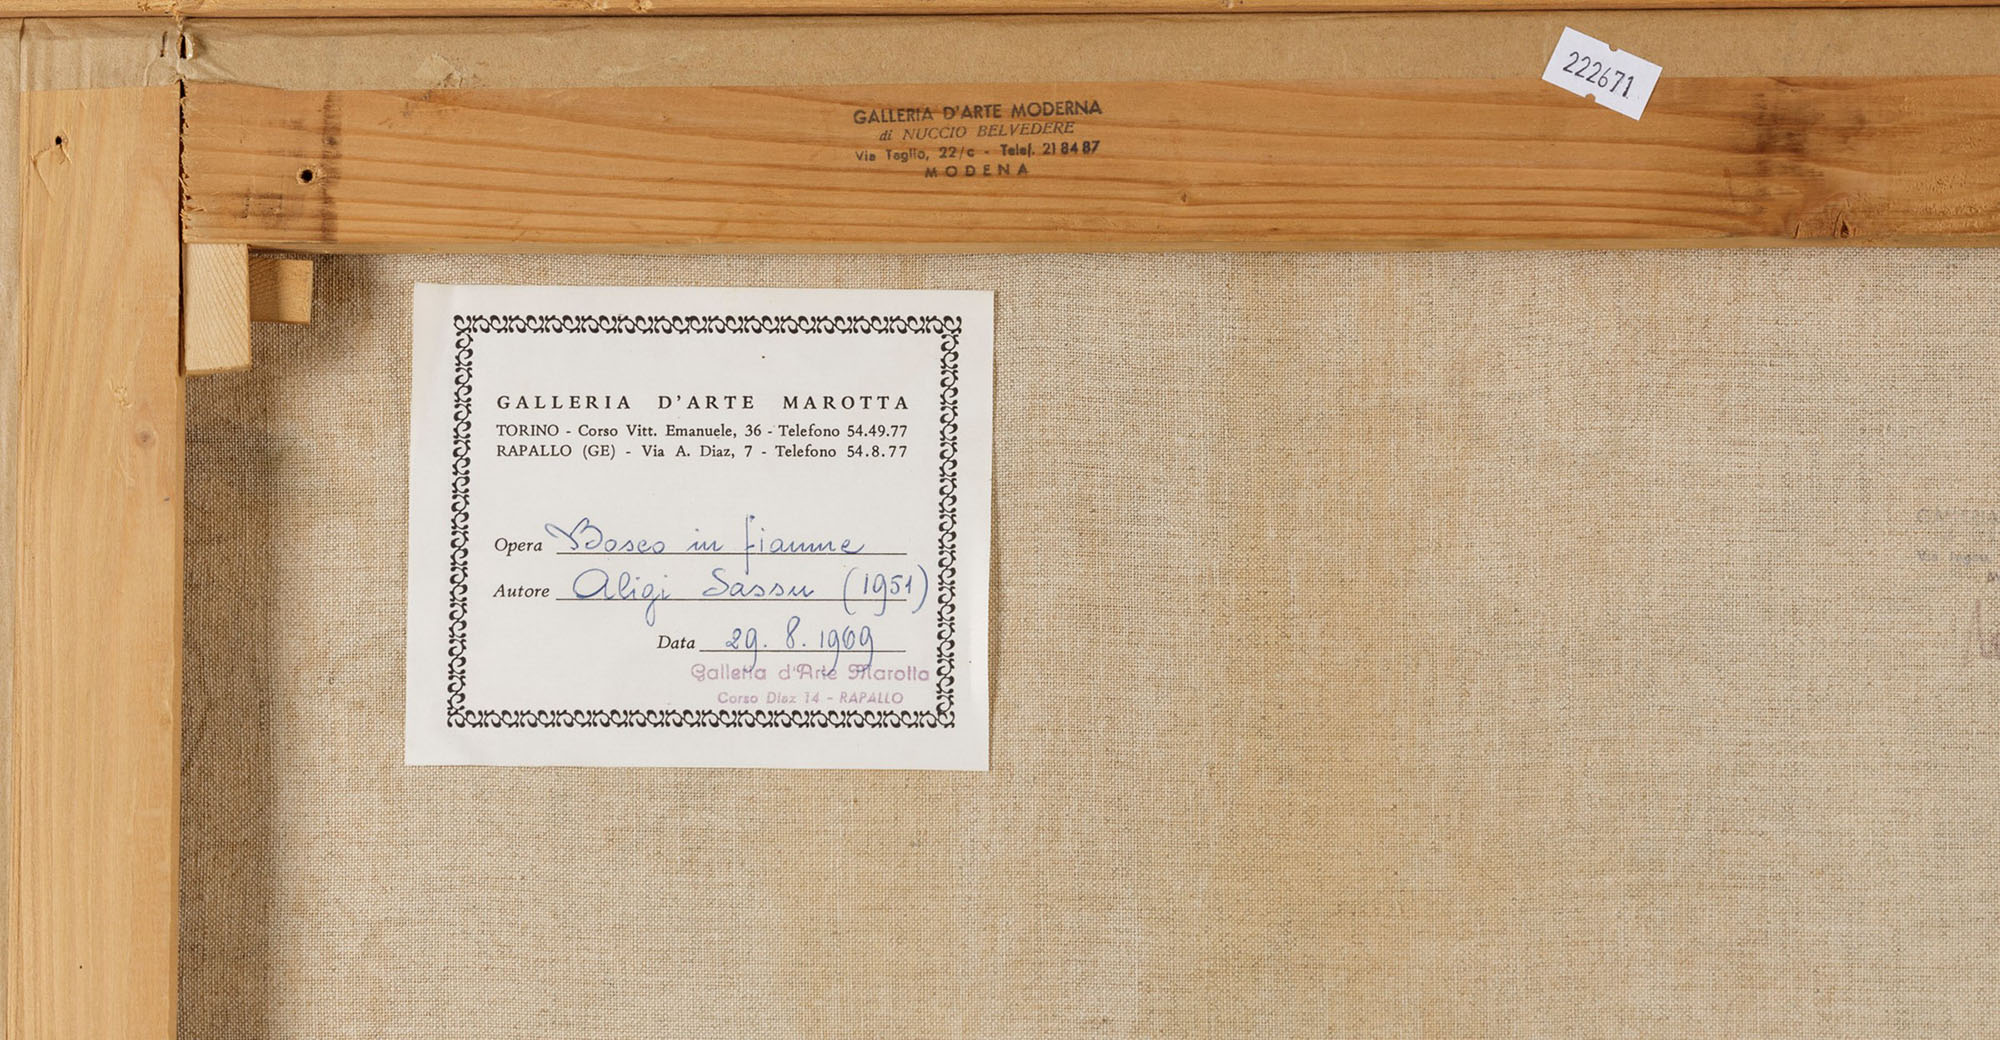 222671
GALLERIA D'ARTE MODERNA
di NUCCIO BELVEDERE
Via Taglio, 22/c - Telef. 21 84 87
MODENA
GALLERIA D'ARTE MAROTTA
TORINO - Corso Vitt. Emanuele, 36 - Telefono 54.49.77
RAPALLO (GE) - Via A. Diaz, 7 - Telefono 54.8.77
Opera Bosco in fiamme
Autore Aligi Sassu (1951)
Data 29. 8. 1969
Galleria d'Arte Marotta
Corso Diaz 14 - RAPALLO